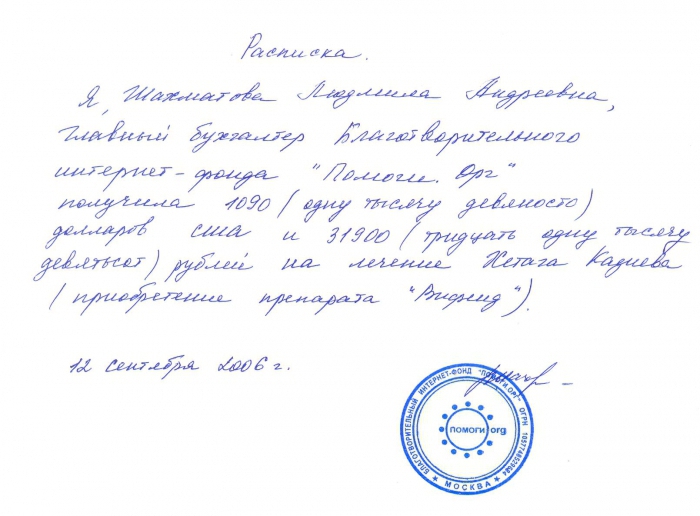 Расписка.
Я, Шахматова Людмила Андреевна,
главный бухгалтер Благотворительного
интернет-фонда "Помоги.Орг"
получила 1090 (одну тысячу девяносто)
долларов сша и 31900 (тридцать одну тысячу
девятьсот) рублей на лечение Хетага Кадиева
(приобретение препарата "Вифенд").
12 сентября 2006 г.
БЛАГОТВОРИТЕЛЬНЫЙ ИНТЕРНЕТ-ФОНД "ПОМОГИ.ОРГ" ОГРН
ПОМОГИ.org
* МОСКВА *